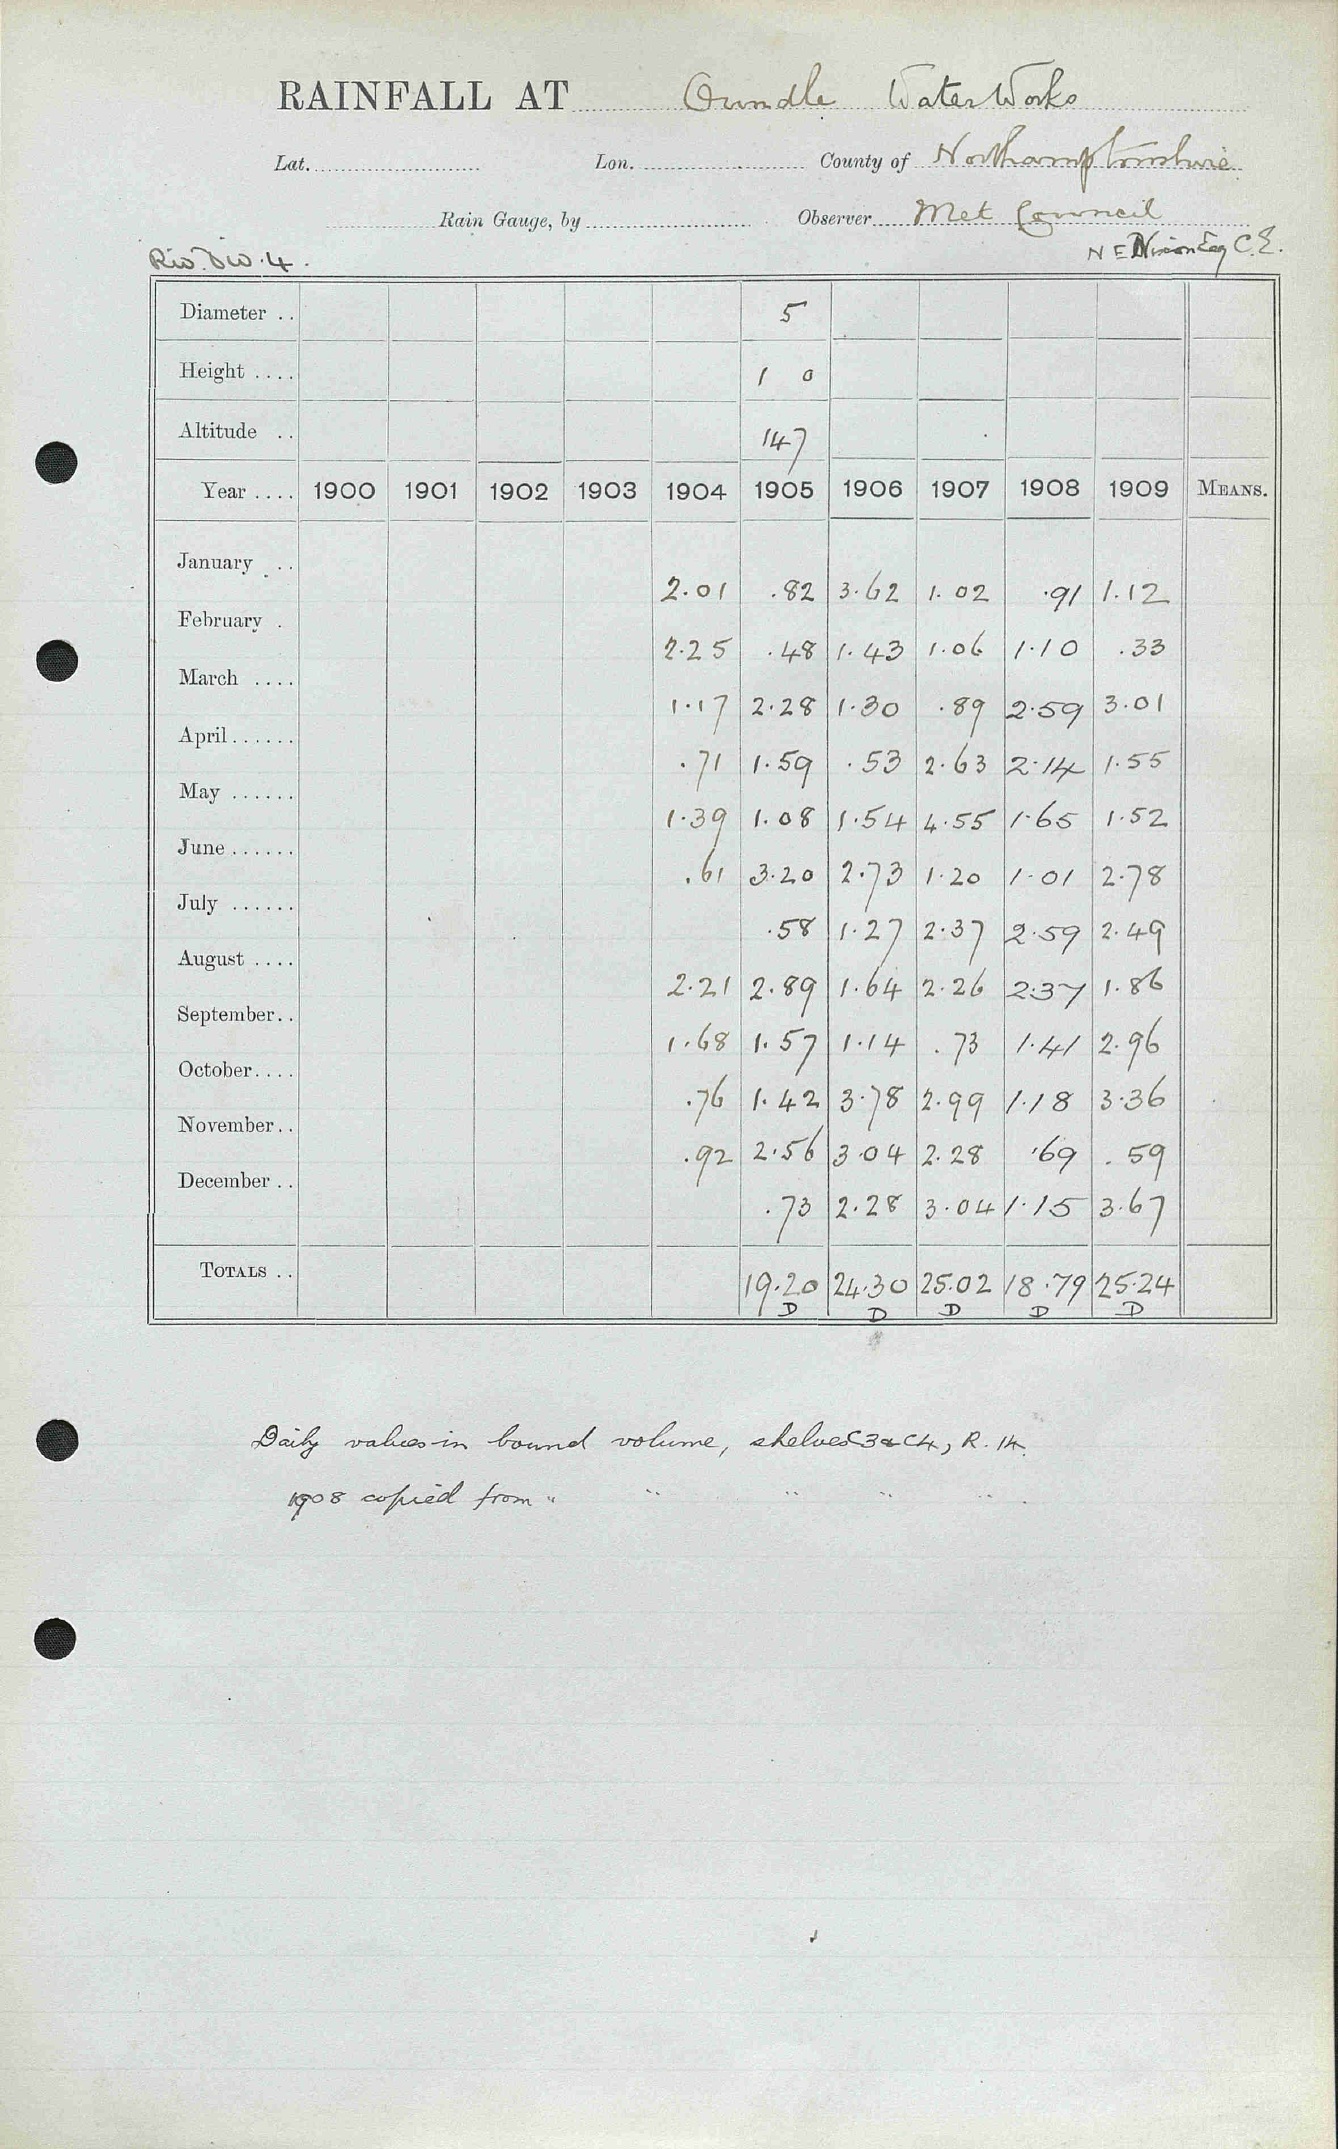 RAINFALL AT Oundle Water Works
Lat. Lon. County of Northamptonshire
Rain Gauge, by Observer Met Council
Riv. Div. 4. N E Nixon Esq C.E.
Diameter .. 5
Height .... 1 0
Altitude .. 147
Year .... 1900 1901 1902 1903 1904 1905 1906 1907 1908 1909 MEANS.
January .. 2.01 .82 3.62 1.02 .91 1.12
February . 2.25 .48 1.43 1.06 1.10 .33
March .... 1.17 2.28 1.30 .89 2.59 3.01
April...... .71 1.59 .53 2.63 2.14 1.55
May ...... 1.39 1.08 1.54 4.55 1.65 1.52
June...... .61 3.20 2.73 1.20 1.01 2.78
July ...... .58 1.27 2.37 2.59 2.49
August .... 2.21 2.89 1.64 2.26 2.37 1.86
September.. 1.68 1.57 1.14 .73 1.41 2.96
October.... .76 1.42 3.78 2.99 1.18 3.36
November.. .92 2.56 3.04 2.28 .69 .59
December .. .73 2.28 3.04 1.15 3.67
TOTALS .. 19.20 24.30 25.02 18.79 25.24
D D D D D
Daily values in bound volume, shelves C3 & C4, R. 14.
1908 copied from " " " " "